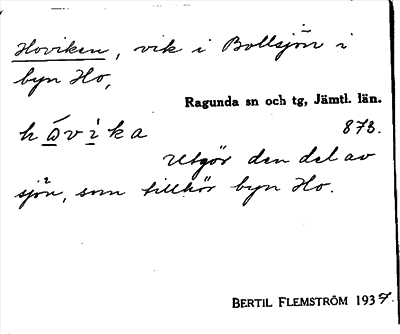 Hoviken, vik i Bollsjön i
byn Ho,
Ragunda sn och tg, Jämtl. län.
hövika 873.
Utgör den del av
sjön, som tillhör byn Ho.
BERTIL FLEMSTRÖM 1937.